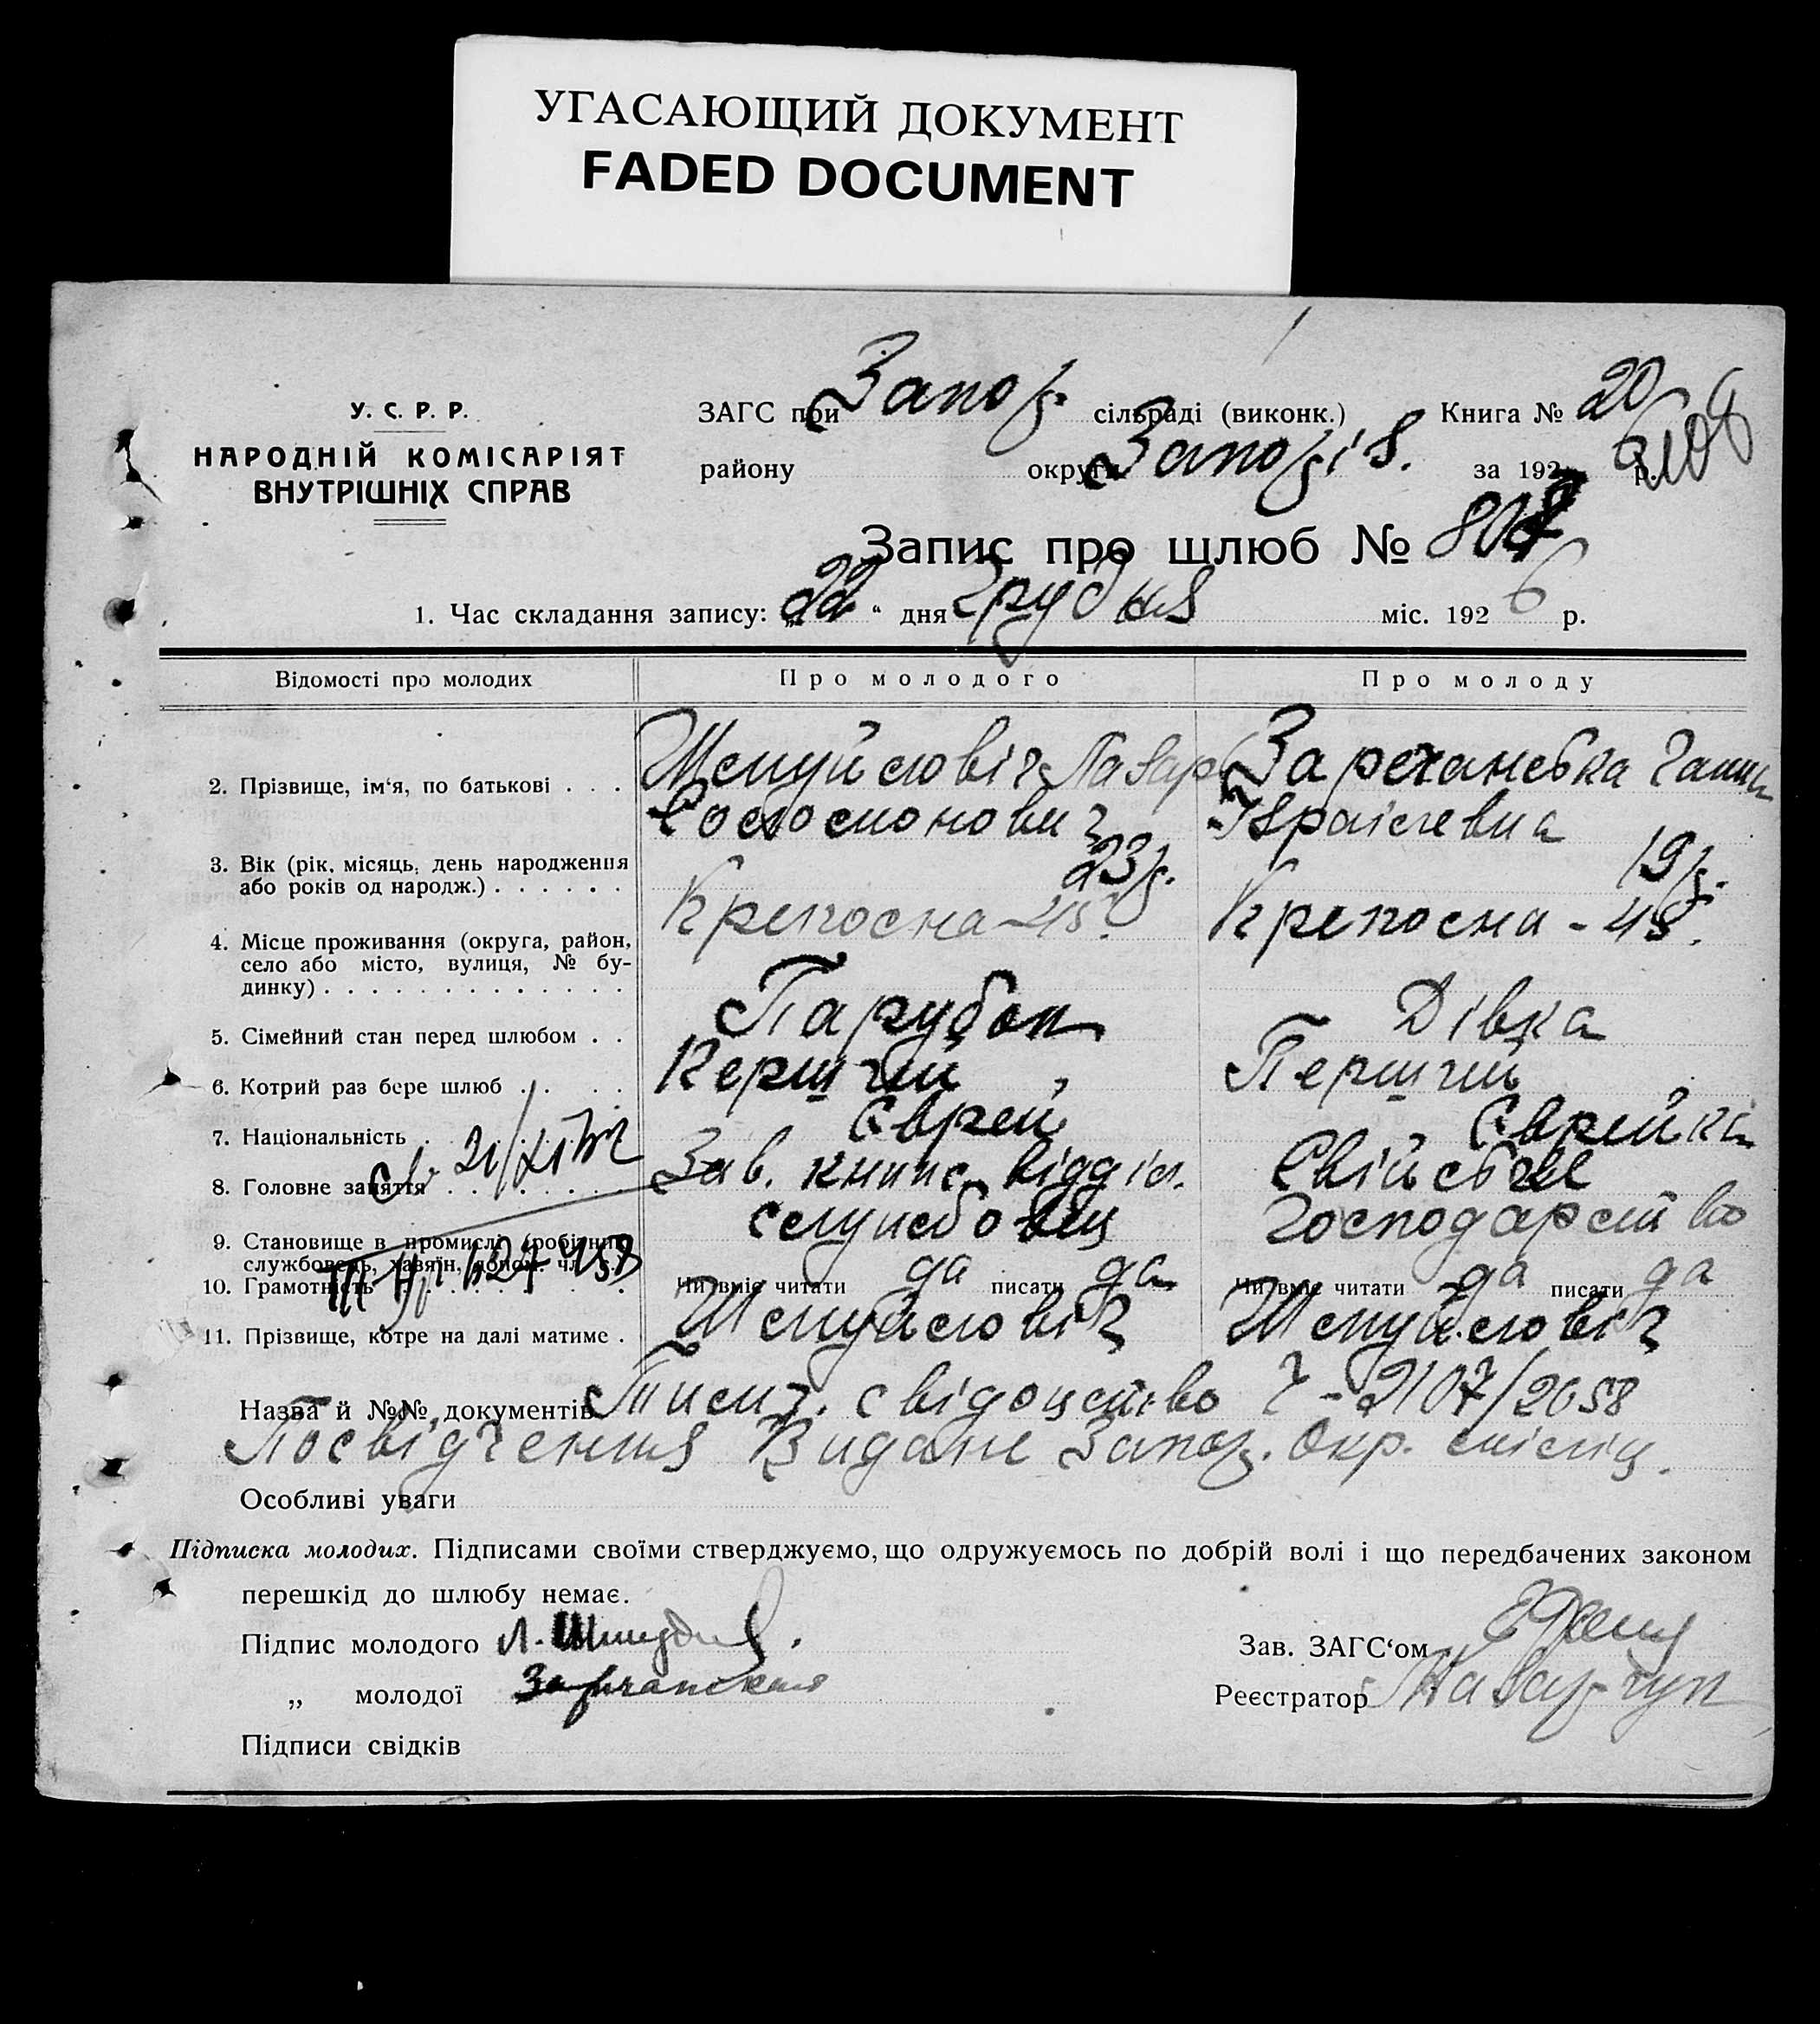 УГАСАЮЩИЙ ДОКУМЕНТ
FADED DOCUMENT
У. С. Р. Р.
НАРОДНІЙ КОМІСАРІЯТ
ВНУТРІШНІХ СПРАВ
ЗАГС при Запор. сільраді (виконк.) Книга № 20
району округи Запоріз. за 192 р.
Запис про шлюб №
1. Час складання запису: „22“ дня Грудня міс. 1926 р.
Відомості про молодих Про молодого Про молоду
2. Прізвище, ім‘я, по батькові . . . Шмуйловіч Лазар Зареханська Ганна
Соломонович Ізраілевна
3. Вік (рік, місяць, день народження
або років од народж.) . . . . . . 23 р. 19 р.
Крепосна - 45. Крепосна - 45.
4. Місце проживання (округа, район,
село або місто, вулиця, № бу-
динку) . . . . . . . . . . . . .
5. Сімейний стан перед шлюбом . . Парубок Дівка
6. Котрий раз бере шлюб . . . . Перший Перший
7. Національність . . . . . Єврей Єврейка
8. Головне заняття . . . . . . . Зав. книж. відділ. Свійське
службовець Господарство
9. Становище в промислі (робітник,
службовець, хазяїн, допом. чл.
10. Грамотність . . . . . . . . . Чи вміє читати да писати да Чи вміє читати да писати да
11. Прізвище, котре на далі матиме . Шмуйловіч Шмуйловіч
Назва й №№ документів свідоцтво Ч - 2107/2658
Посвідчення Видане Запор. Окр. міліц.
Особливі уваги
Підписка молодих. Підписами своїми стверджуємо, що одружуємось по добрій волі і що передбачених законом
перешкід до шлюбу немає.
Підпис молодого Л. Зав. ЗАГС‘ом
„ молодої Реєстратор Назарчук
Підписи свідків